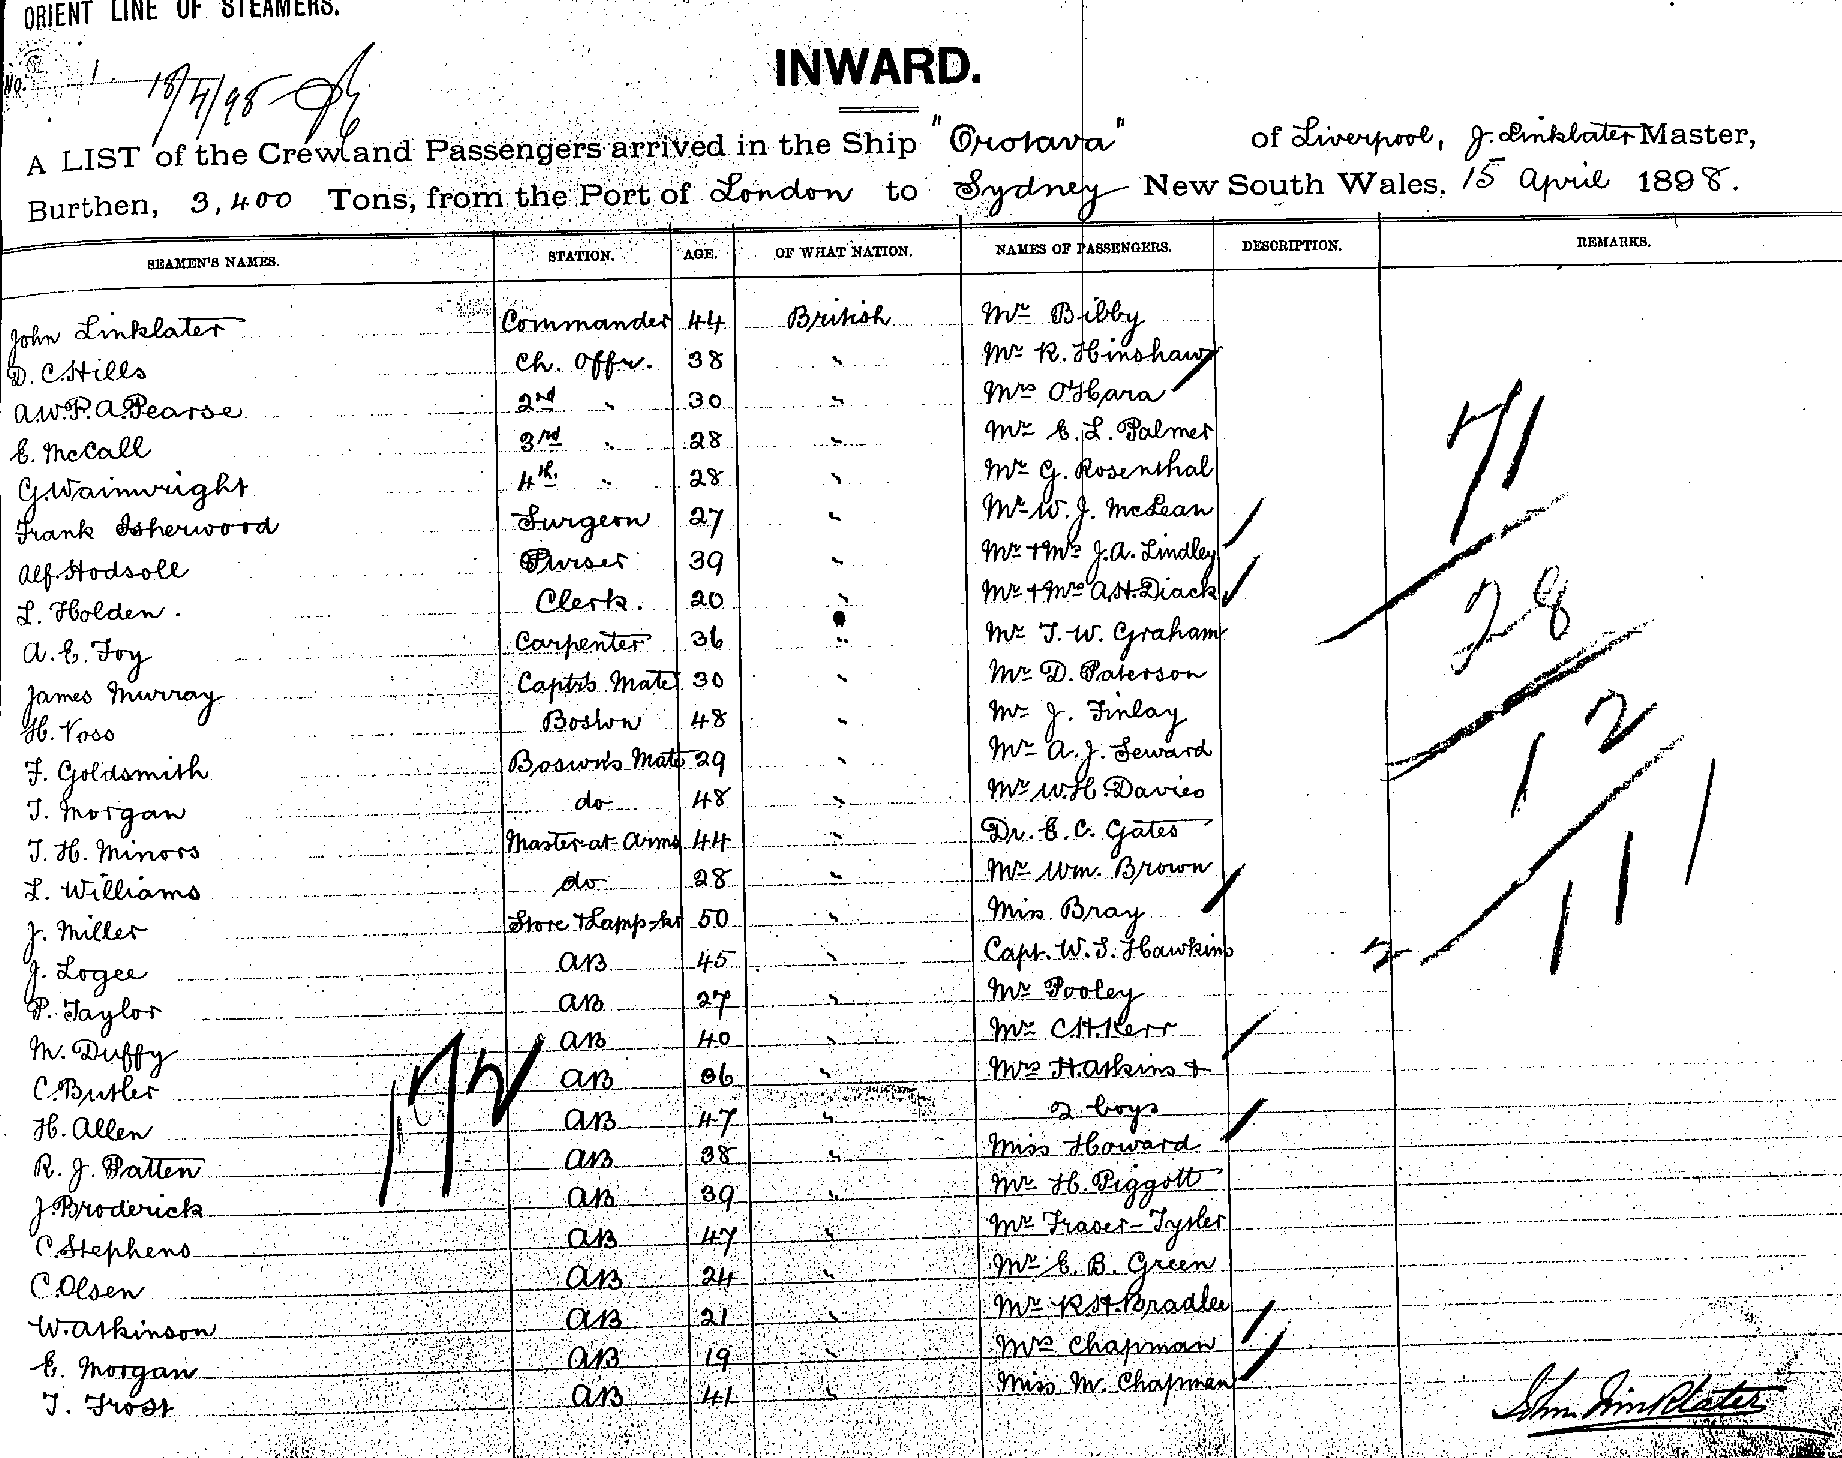 ORIENT LINE OF STEAMERS.
No. 1. 18/4/98
INWARD.
A LIST of the Crew and Passengers arrived in the Ship "Orotava" of Liverpool, J. Linklater Master,
Burthen, 3,400 Tons, from the Port of London to Sydney New South Wales, 15 April 1898.
SEAMEN'S NAMES. STATION. AGE. OF WHAT NATION. NAMES OF PASSENGERS. DESCRIPTION. REMARKS.
John Linklater Commander 44 British Mr Bibby
D. C. Hills Ch. Offr. 38 " Mr R. Hinshaw
A.W.P.A. Pearse 2nd " 30 " Mrs O'Hara
E. McCall 3rd " 28 " Mr E. L. Palmer
G. Wainwright 4th " 28 " Mr G. Rosenthal
Frank Isherwood Surgeon 27 " Mr W. J. McLean
Alf. Hodsoll Purser 39 " Mr + Mrs J.A. Lindley
L. Holden. Clerk. 20 " Mr + Mrs A.H. Diack
A. E. Foy Carpenter 36 " Mr T. W. Graham
James Murray Captn's Mate 30 " Mr D. Paterson
H. Voss Boswn 48 " Mr J. Finlay
F. Goldsmith Boswn's Mate 29 " Mr A. J. Seward
T. Morgan do 48 " Mr W.H. Davies
T. H. Minors Master-at-Arms 44 " Dr. E. C. Gates
L. Williams do 28 " Mr Wm. Brown
J. Miller Store & Lamp-kr 50 " Miss Bray
J. Logee AB 45 " Capt. W. S. Hawkins
P. Taylor AB 27 " Mr Pooley
M. Duffy AB 40 " Mr C.H. Kerr
C. Butler AB 36 " Mrs H. Atkins +
H. Allen AB 47 " 2 boys
R. J. Patten AB 38 " Miss Howard
J. Broderick AB 39 " Mr H. Piggott
C. Stephens AB 47 " Mr Fraser-Tytler
C. Olsen AB 24 " Mr E. B. Green
W. Atkinson AB 21 " Mr R.H. Bradlee
E. Morgan AB 19 " Mrs Chapman
T. Frost AB 41 " Miss M. Chapman
71
28
12
2 111
172
John Linklater